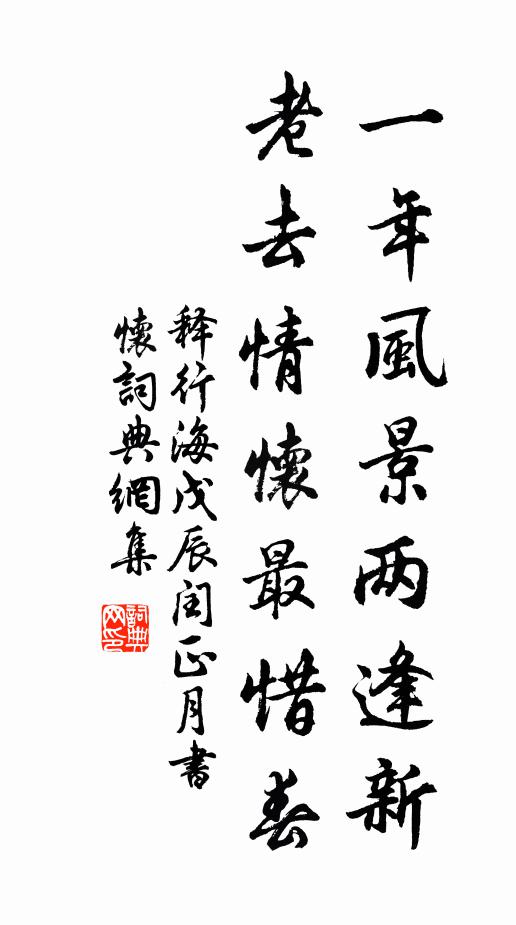 一年風景两逢新
老去情懷最惜春
释行海戊辰闰正月書
懷詞典網集
詞典网印